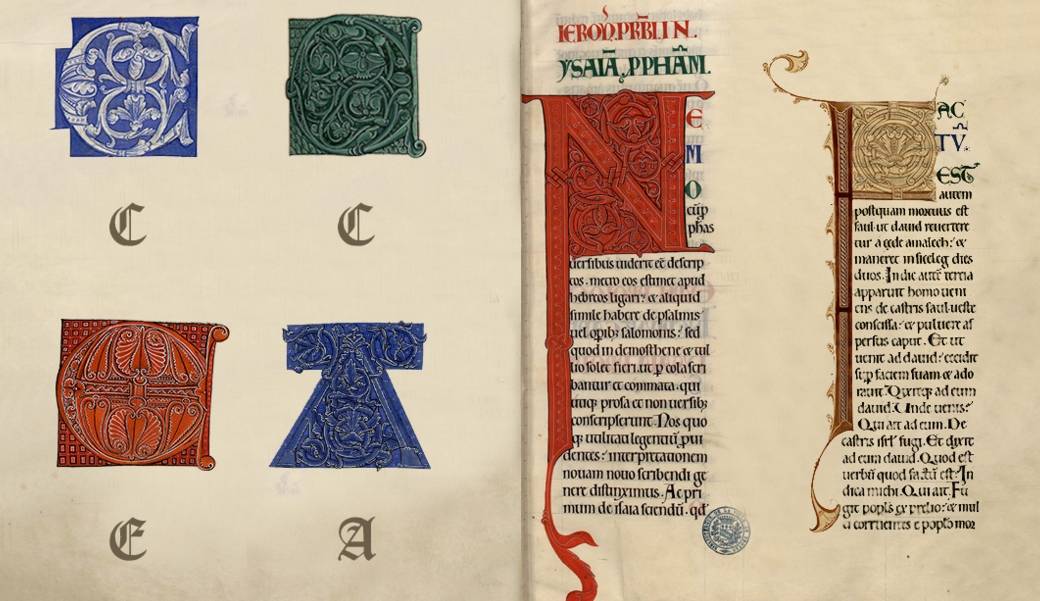 C C
C C
E A
E A
IEROÑ. PRBLI N.
YSAIĀ. PPHĀM.
N E
M
O
cūp
phas
uersibus uiderit eē descrip
tos. metro eos estimet apud
hebreos ligari: & aliquid
simile habere de psalmis
uel opib; salomonis: sed
quod in demosthene & tul
lio solet fieri. ut p cola scri
bantur & commata. qui
utiq; prosa & non uersib;
conscripserunt. Nos quo
q; utilitati legentiū pui
dentes: interpretationem
nouam nouo scribendi ge
nere distinximus. Ac pri
mum de isaia sciendū. qd
F AC
TV̄.
EST
autem
postquam mortuus est
saul. ut dauid reuertere
tur a cede amalech: &
maneret in siceleg dies
duos. In die autē tertia
apparuit homo ueni
ens de castris saul. ueste
conscissa: & puluere as
persus caput. Et ut
uenit ad dauid: cecidit
sup faciem suam & ado
rauit. Dixitq; ad eum
dauid. Unde uenis?
Qui ait ad eum. De
castris isrl fugi. Et dixit
ad eum dauid. Quod est
uerbū quod factū est? In
dica michi. Qui ait. Fu
git popls ex prelio: & mul
ti corruentes e poplo mor